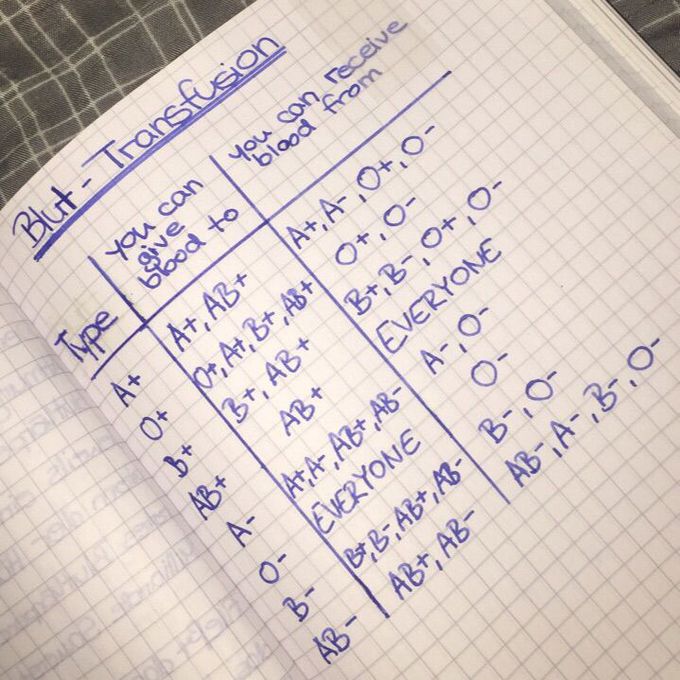 Blut-Transfusion
Type | you can give blood to | you can receive blood from
A+ | A+, AB+ | A+, A-, O+, O-
O+ | O+, A+, B+, AB+ | O+, O-
B+ | B+, AB+ | B+, B-, O+, O-
AB+ | AB+ | EVERYONE
A- | A+, A-, AB+, AB- | A-, O-
O- | EVERYONE | O-
B- | B+, B-, AB+, AB- | B-, O-
AB- | AB+, AB- | AB-, A-, B-, O-